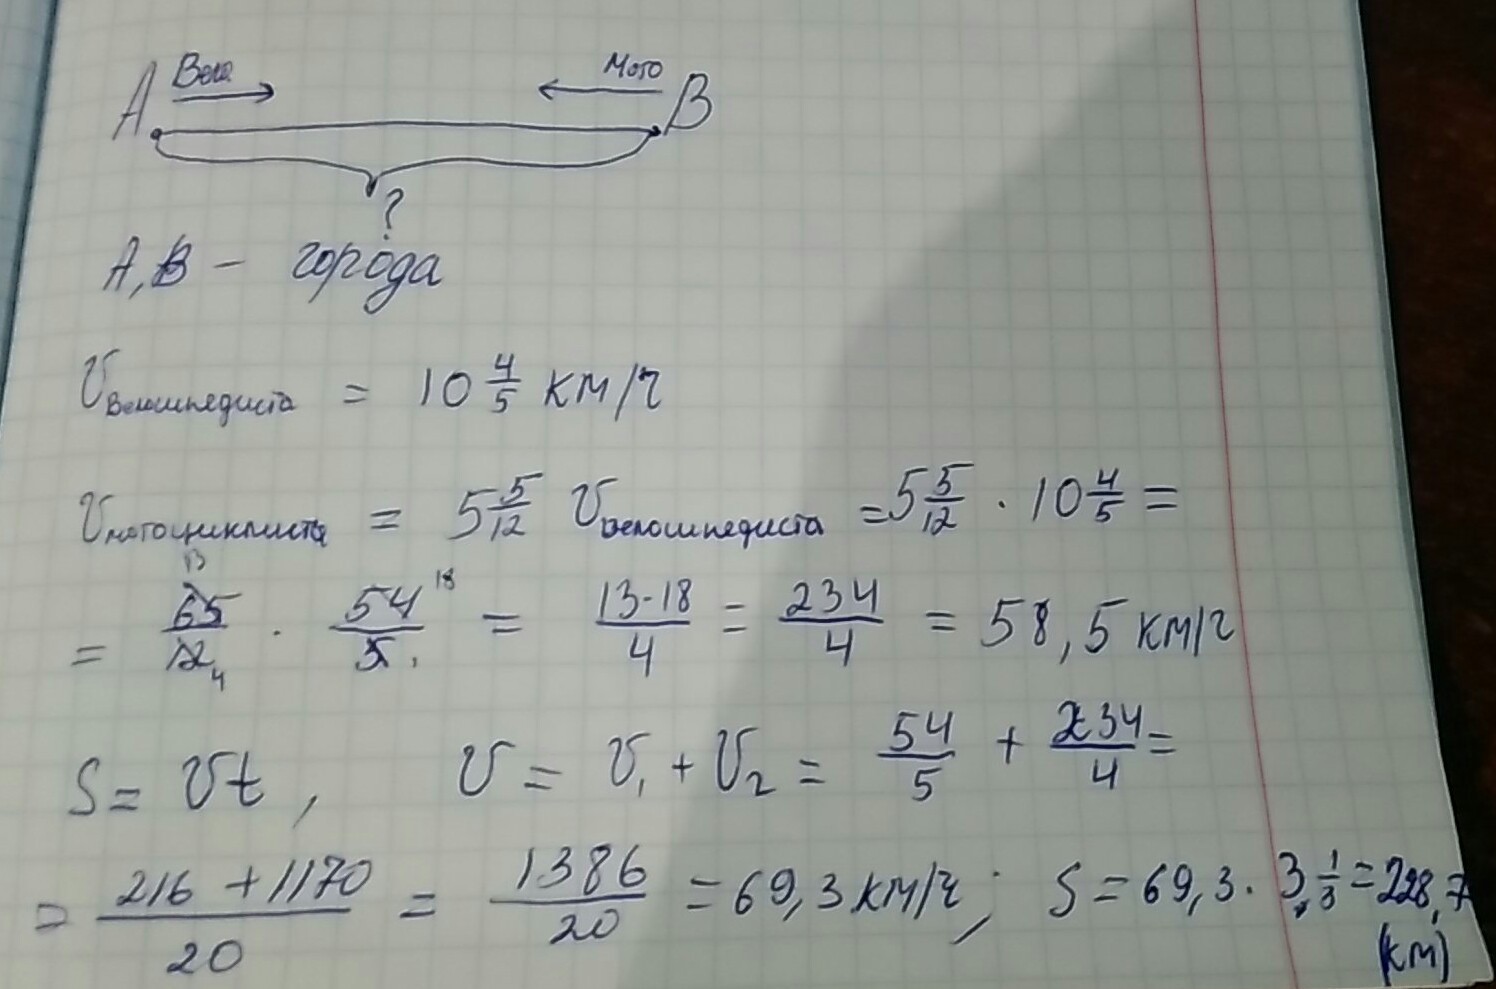 A Вело. Мото B
?
A, B - города
V велосипедиста = 10 4/5 км/ч
V мотоциклиста = 5 5/12 V велосипедиста = 5 5/12 · 10 4/5 =
= 65/12 · 54/5 = 13·18/4 = 234/4 = 58,5 км/ч
13 4 18 1
S = Vt, V = V₁ + V₂ = 54/5 + 234/4 =
= 216 + 1170/20 = 1386/20 = 69,3 км/ч; S = 69,3 · 3,1/3 = 228,7
(км)